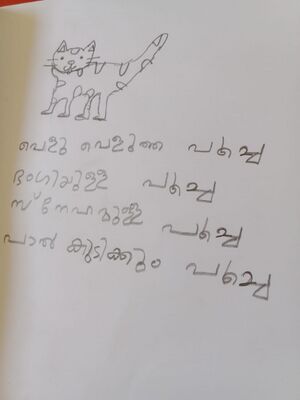 വെളു വെളുത്ത പൂച്ച
ഭംഗിയുള്ള പൂച്ച
സ്നേഹമുള്ള പൂച്ച
പാൽ കുടിക്കും പൂച്ച